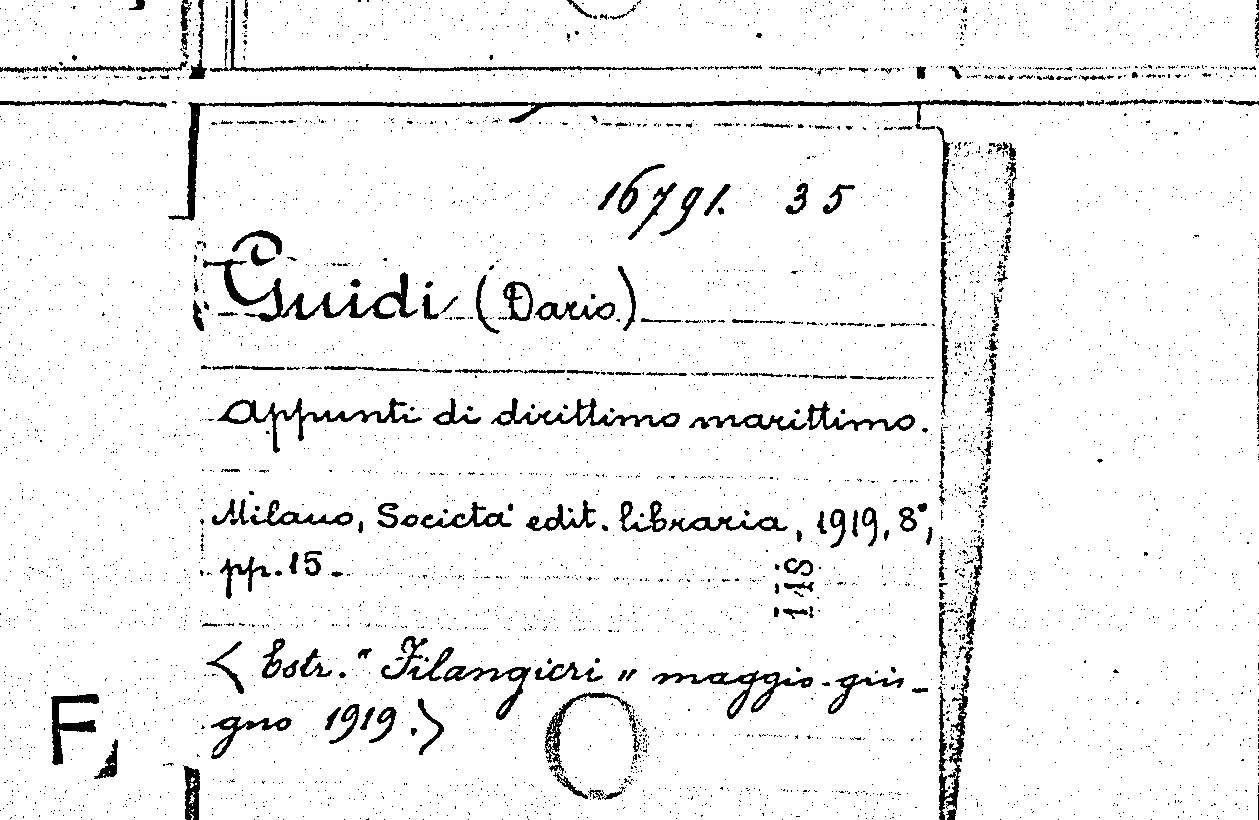 16791. 35
Guidi (Dario)
Appunti di dirittimo marittimo.
Milano, Società edit. libraria, 1919, 8°,
pp. 15.
148
< Estr. " Filangieri „ maggio-giu-
gno 1919.>
F